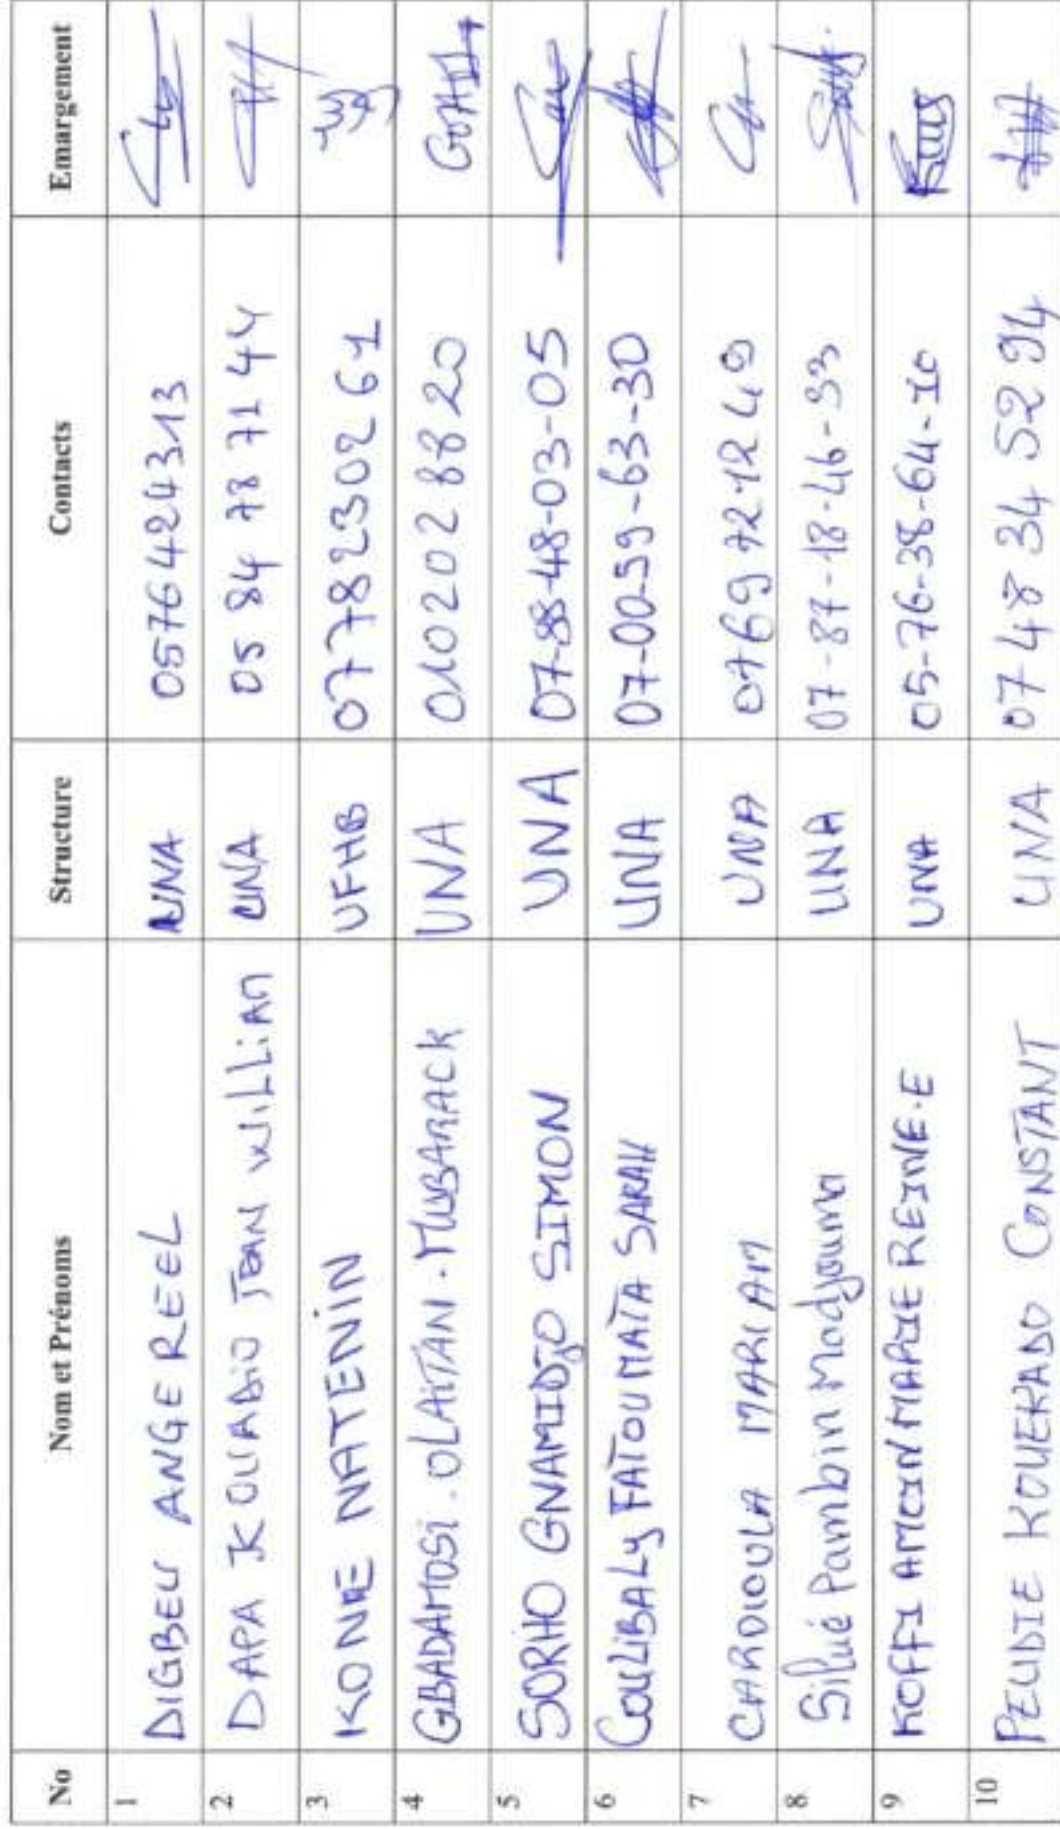 No Nom et Prénoms Structure Contacts Emargement
1 DIGBEU ANGE REEL UNA 0576424313
2 DAPA KOUADIO JEAN WILLIAM UNA 05 84 78 71 44
3 KONE NATENIN UFHB 0778230261
4 GBADAMOSI.OLAITAN.MUBARACK UNA 0102028820
5 SORHO GNAMIDJO SIMON UNA 07-88-48-03-05
6 COULIBALY FATOUMATA SARAH UNA 07-00-59-63-30
7 CARDIOULA MARIAM UNA 0769721249
8 Silué Pambin Madjouma UNA 07-87-18-46-33
9 KOFFI AMOIN MARIE REINE.E UNA 05-76-38-64-10
10 PEUDIE KOUEKADO CONSTANT UNA 07 48 34 52 94